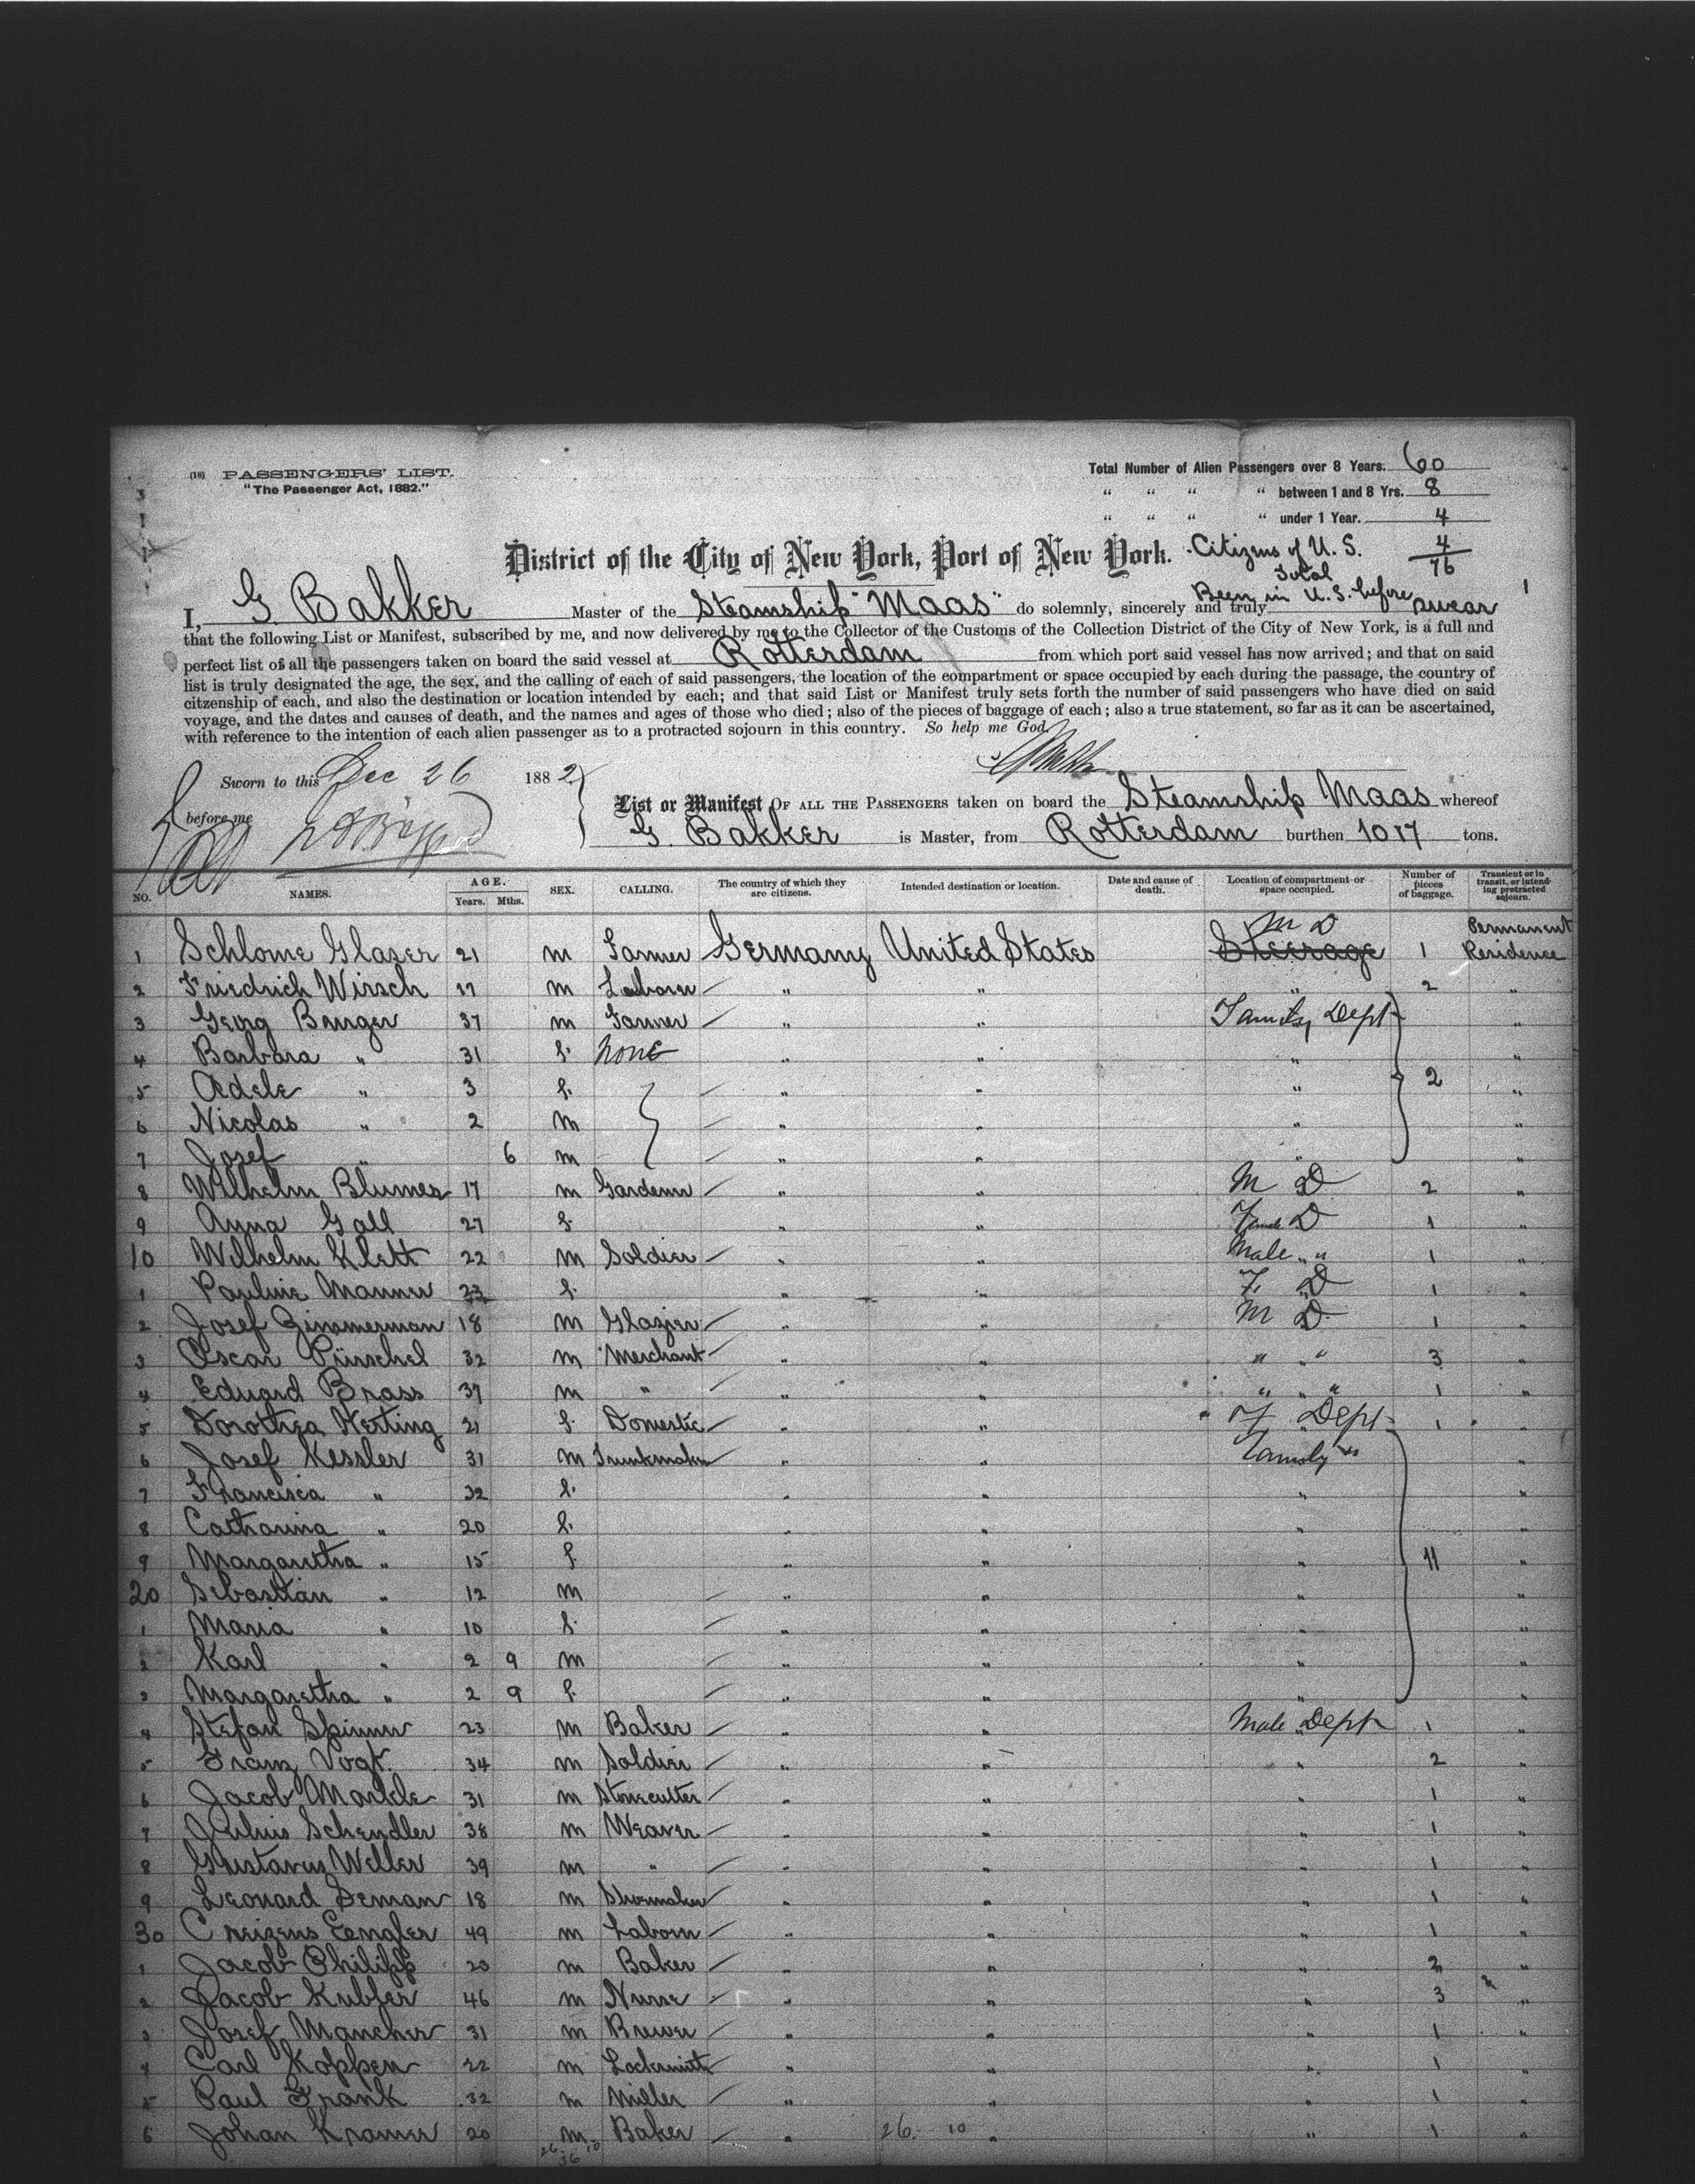 (18) PASSENGERS' LIST.
"The Passenger Act, 1882."
Total Number of Alien Passengers over 8 Years. 60
" " " " between 1 and 8 Yrs. 8
" " " " under 1 Year. 4
District of the City of New York, Port of New York. Citizens of U. S. 4
Total 76
Been in U. S. before 1
I, G. Bakker Master of the Steamship "Maas" do solemnly, sincerely and truly swear
that the following List or Manifest, subscribed by me, and now delivered by me to the Collector of the Customs of the Collection District of the City of New York, is a full and
perfect list of all the passengers taken on board the said vessel at Rotterdam from which port said vessel has now arrived; and that on said
list is truly designated the age, the sex, and the calling of each of said passengers, the location of the compartment or space occupied by each during the passage, the country of
citzenship of each, and also the destination or location intended by each; and that said List or Manifest truly sets forth the number of said passengers who have died on said
voyage, and the dates and causes of death, and the names and ages of those who died; also of the pieces of baggage of each; also a true statement, so far as it can be ascertained,
with reference to the intention of each alien passenger as to a protracted sojourn in this country. So help me God.
Sworn to this Dec 26 1882
before me
List or Manifest OF ALL THE PASSENGERS taken on board the Steamship Maas whereof
G. Bakker is Master, from Rotterdam burthen 1017 tons.
NO. NAMES. AGE. Years. Mths. SEX. CALLING. The country of which they are citizens. Intended destination or location. Date and cause of death. Location of compartment or space occupied. Number of pieces of baggage. Transient or in transit, or intending protracted sojourn.
1 Schlome Glaser 21 m Farmer Germany United States M D Steerage 1 Permanent Residence
2 Friedrich Wirsch 17 m Laborer " " " 2 "
3 Georg Banger 37 m Farmer " " Family Dept "
4 Barbara " 31 f. None " " " "
5 Adele " 3 f. " " " 2 "
6 Nicolas " 2 m " " " "
7 Josef " 6 m " " " "
8 Wilhelm Blumes 17 m Gardener " " M D 2 "
9 Anna Gall 27 f. " " Female D 1 "
10 Wilhelm Klett 22 m Soldier " " Male " 1 "
1 Pauline Manner 23 f. " " F. D 1 "
2 Josef Zimmerman 18 m Glazier " " M D 1 "
3 Oscar Pürschel 32 m Merchant " " " " 3 "
4 Eduard Brass 37 m " " " " " 1 "
5 Dorothea Herting 21 f. Domestic " " F Dept 1 "
6 Josef Kessler 31 m Trunkmaker " " Family " "
7 Francisca " 32 f. " " " "
8 Catharina " 20 f. " " " "
9 Margaretha " 15 f. " " " 11 "
20 Sebastian " 12 m " " " "
1 Maria " 10 f. " " " "
2 Karl " 2 9 m " " " "
3 Margaretha " 2 9 f. " " " "
4 Stefan Spinner 23 m Baker " " Male Dept 1 "
5 Franz Vogt. 34 m Soldier " " " 2 "
6 Jacob Markle 31 m Stonecutter " " " 1 "
7 Julius Schendler 38 m Weaver " " " 1 "
8 Gustavus Weller 39 m " " " " 1 "
9 Leonard Seman 18 m Shoemaker " " " 1 "
30 49 m Laborer " " " 1 "
1 Jacob Philipp 20 m Baker " " " 2 "
2 Jacob Kubler 46 m Nurse " " " 3 "
3 Josef Mancher 31 m Brewer " " " 1 "
4 Carl Koppen 22 m Locksmith " " " 1 "
5 Paul Frank 32 m Miller " " " 1 "
6 Johan Kramer 20 m Baker " 26. 10 " " 1 "
26 10
36